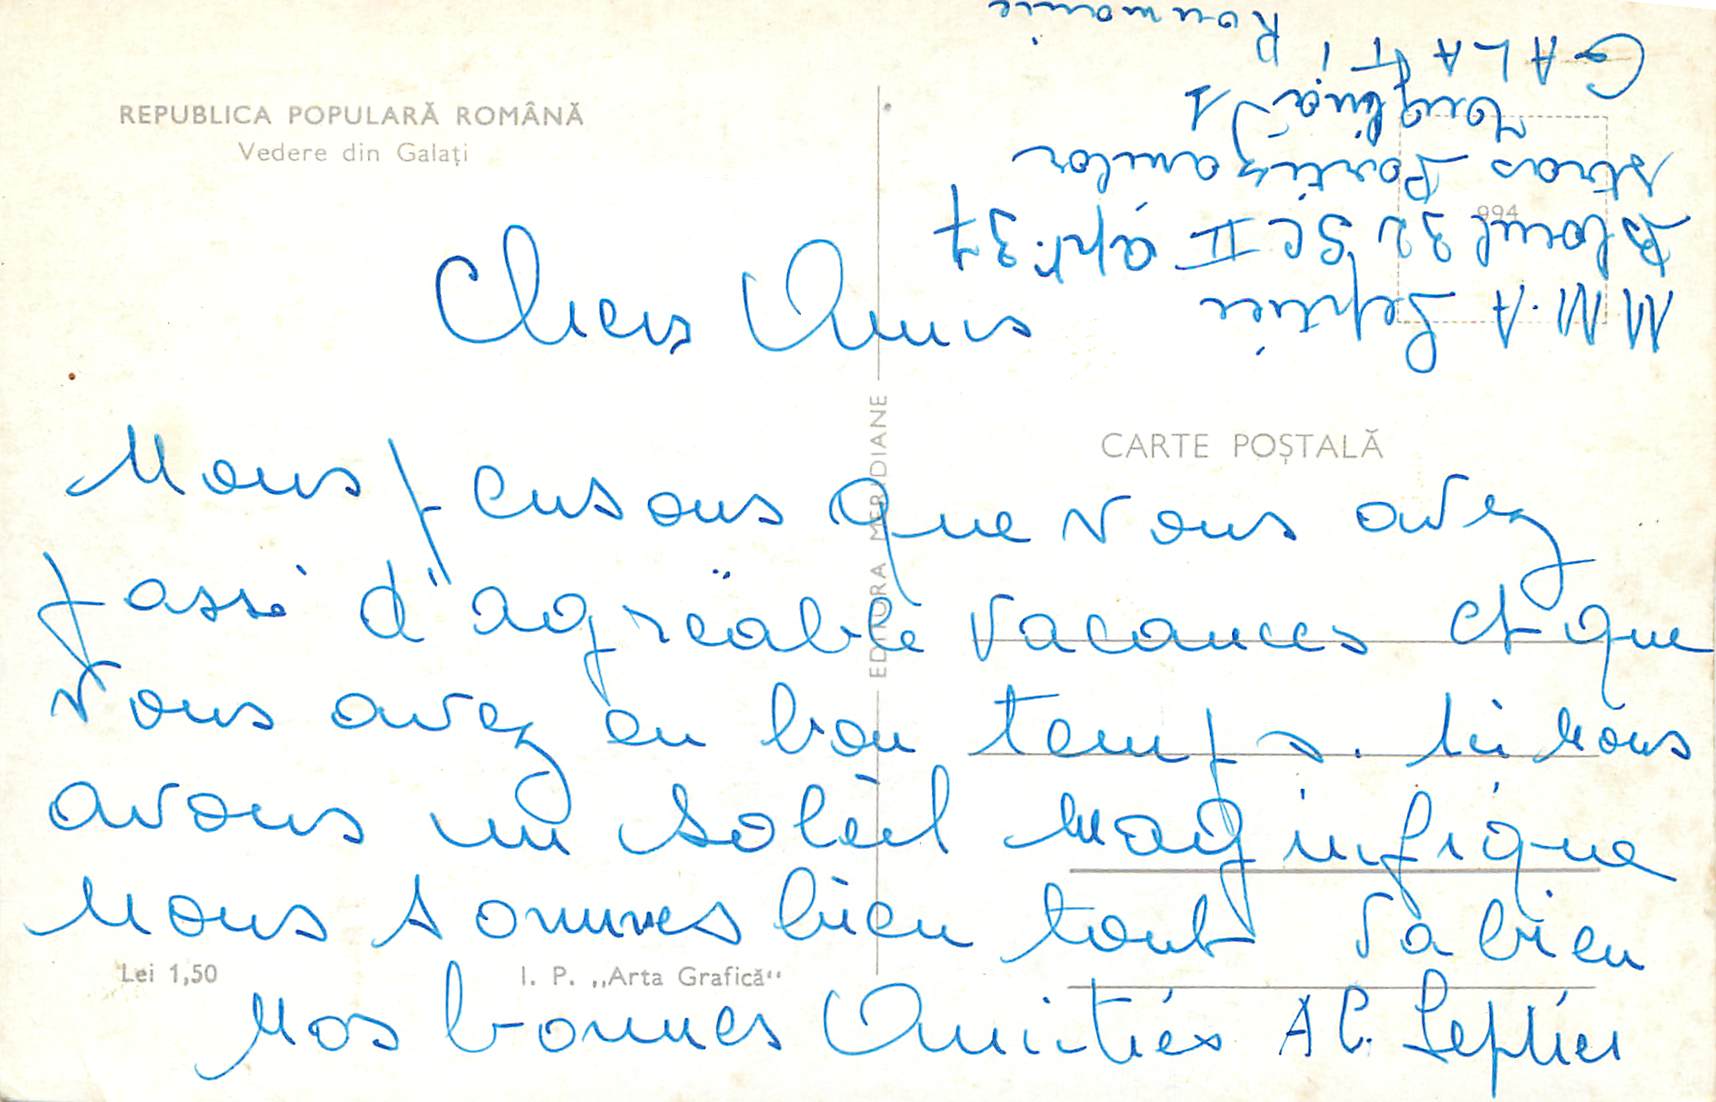 REPUBLICA POPULARĂ ROMÂNĂ
Vedere din Galați
Roumanie
GALATI
Tiglina 1
stras Partizanilor
Blocul 32 SC II apt. 37
M M. A Leptier
994
CARTE POȘTALĂ
EDITURA MERIDIANE
Chers Amis
Nous pensons que vous avez
passé d'agréable vacances et que
vous avez eu bon temps. Ici nous
avons un soleil magnifique
Nous sommes bien tout va bien
Lei 1,50
I. P. „Arta Grafică“
Nos bonnes Amitiés A C. Leptier